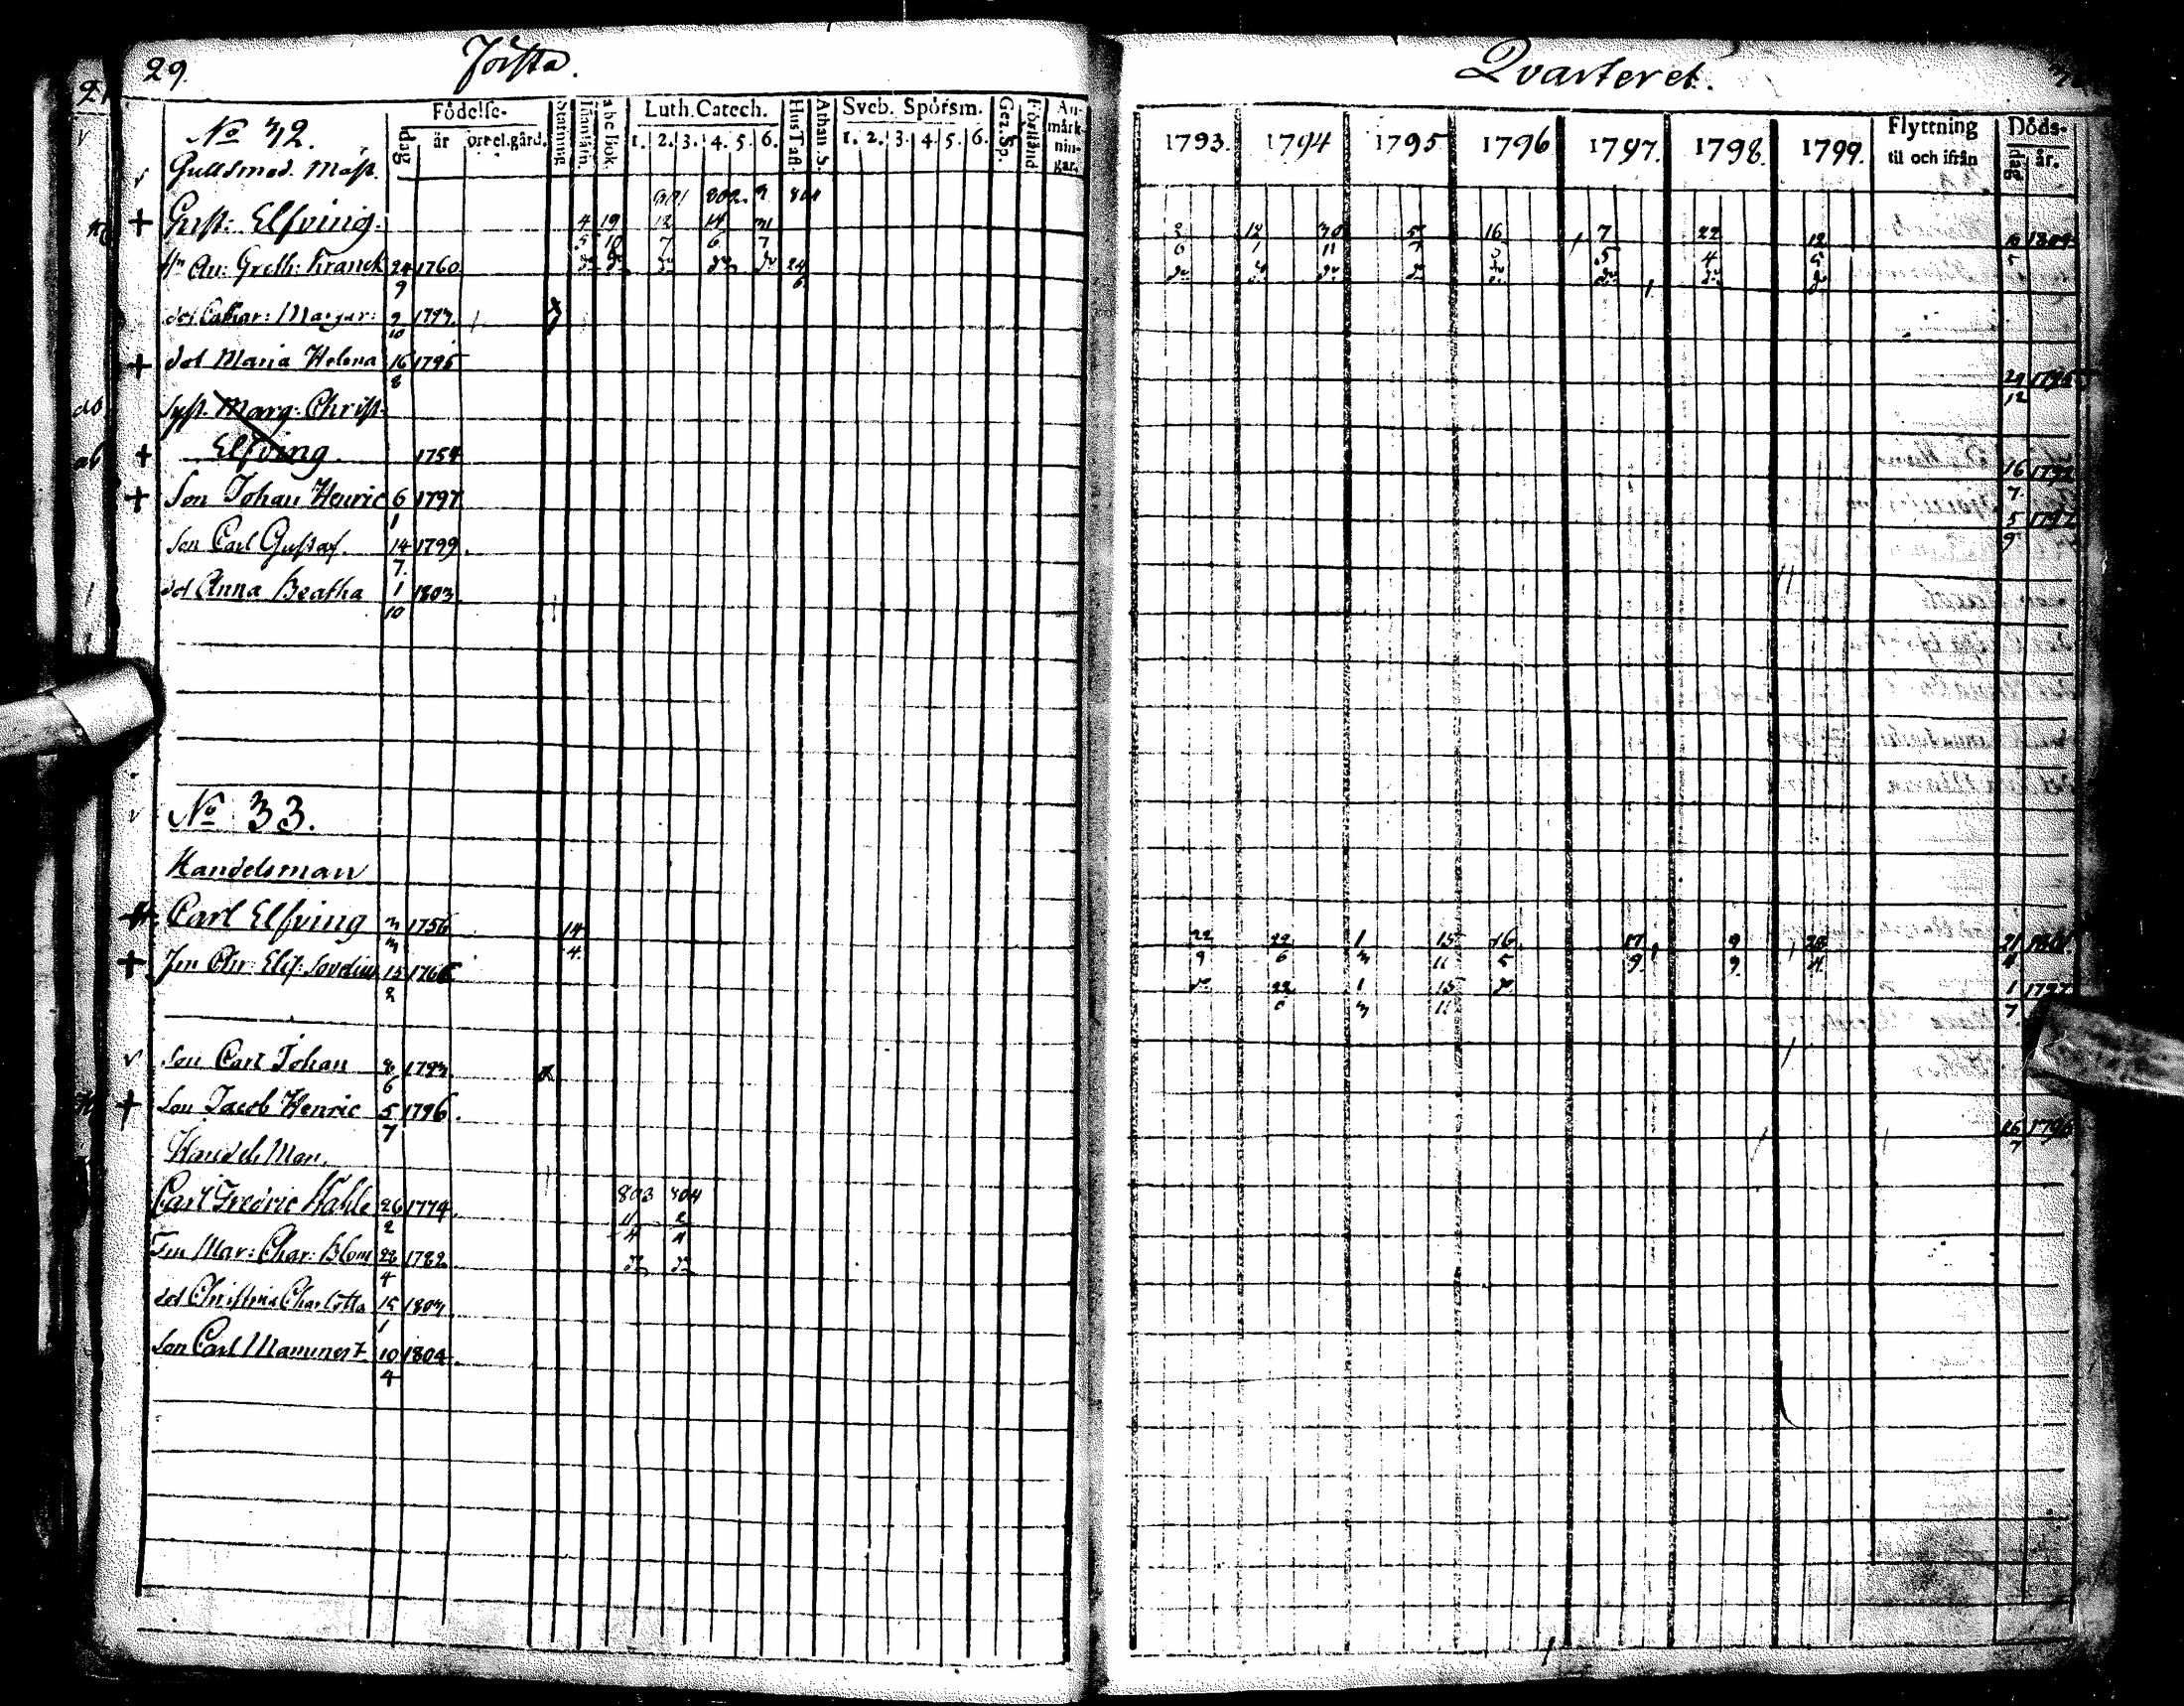 29. Första. Qvarteret.
Födelse- Luth. Catech. Hus Tafl. Athan. S. Sveb. Spörsm. Gez. Sp. Förstånd An-
märk-
nin-
gar.
dag år ort el. gård. 1. 2. 3. 4. 5. 6. 1. 2. 3. 4. 5. 6.
1793. 1794 1795 1796 1797. 1798. 1799. Flyttning
til och ifrån Döds-
dag år.
No 32.
Gullsmed. Mäst.
801 802. 3 804
+ Gust: Elfving. 4 19 12 14 31
5 10 7 6 7
3 12 30 5 16 7 22 12 10 1804
6 1 11 7 5 5 4 5 5
An: Greth: Franck 24 1760 do do do do do 24
9 6
do do do do do do do do
dot Cathar: Margar: 9 1793.
10
+ dot Maria Helena 16 1795
8
29 1795
12
syst. Marg: Christ.
+ Elfving. 1754
16 1792
7.
+ Son Johan Henric 6 1797
1
5 1797
9
son Carl Gustaf. 14 1799.
7.
dot Anna Beatha 1 1803.
10
No 33.
Handelsman
+ Carl Elfving 3 1756 14
3 4.
22 22 1 15 16 17 9 21 1801.
9 6 3 11 5 9 9. 4
+ Chr: Elis: 15 1766
2
do 22 1 15 do 1 1797
6 3 11 7.
son Carl Johan 8 1793
6
+ son Jacob Henric 5 1796.
7
26 1796
7
Handels Man.
Carl Fredric Kahle 26 1774. 803 804
2 11 2
4 4
Mar: Char: Blom 28 1782 do do
4
dot Christina Charlotta 15 1803
1
son Carl 10 1804
4